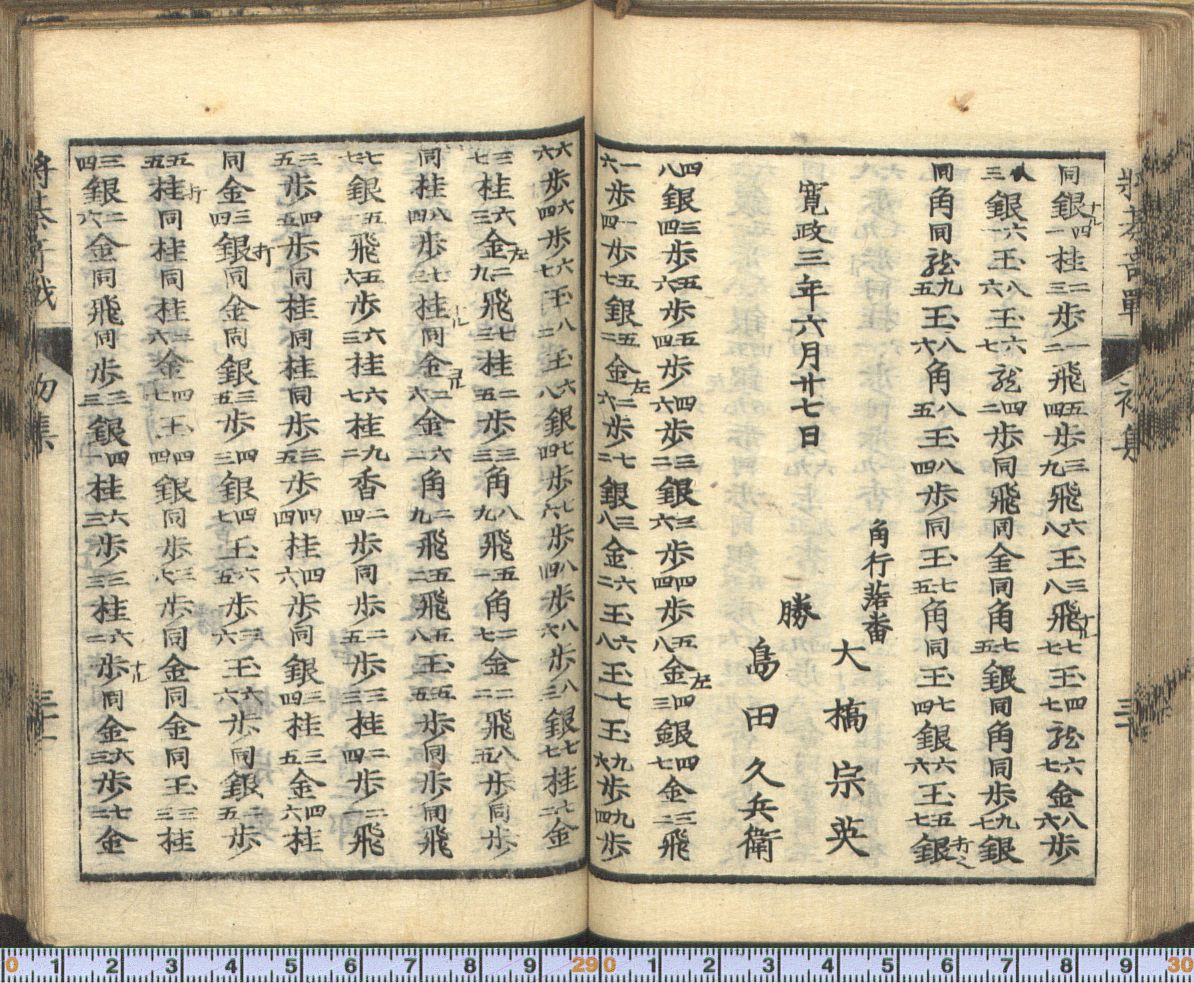 將棊奇戰 初集 三十
同銀ナル四一桂二三歩一二飛五四歩三九飛六八王三八飛ナル七七王四七龍六七金八六歩
八三銀六一王八六王六七龍四二歩同飛同金同角七五銀同角同歩九七銀
同角同龍九五王八六角八五王八四歩同王七五角同王七四銀六六王五七銀打
寛政三年六月廿七日
角行落番
大橋宗英
勝 島田久兵衛
四八銀三四歩五六歩五四歩四六歩三二銀三六歩四四歩五八金左四三銀四七金三二飛
一六歩一四歩五七銀五二金左二六歩七二銀三八金六二王六八王七一王九六歩九四歩
六六歩六四歩六七王八二王六八銀七四歩七六歩八四歩八六歩八三銀七七桂七二金
三七桂六三金左二九飛七三桂二五歩三三角八九飛五一角二七金二二飛八五歩同歩
同桂八四歩七三桂ナル同金二六金六二角二九飛五二飛五八王五五歩同歩同飛
七七銀五一飛五六歩六三桂六七桂九二香二四歩同歩二五歩三三桂二四歩二一飛
三五歩四五歩同桂同桂同歩三五歩四四桂四六歩同銀三四桂三五金四六桂
同金三四銀打同金同銀三五歩四三銀四七王六五歩三六王六六歩同銀五五歩
五五桂打同桂同桂二六金四七王四四銀同歩三七歩同金同金同王三三桂
三四銀二六金同飛同歩三三銀四一桂六三歩三三桂六二歩ナル同金六三歩七二金
將棊奇戰 初集